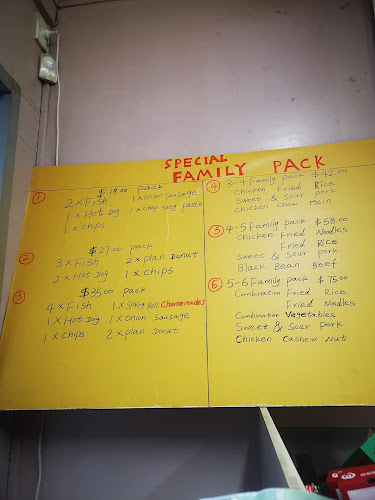 SPECIAL
FAMILY PACK
① $19.00 pack
2 x Fish 1 x onion Sausage
1 x Hot Dog 1 x Chop Suey pattie
1 x chips
② $27.00 pack
3 x Fish 2 x plan Donut
2 x Hot Dog 1 x chips
③ $35.00 pack
4 x Fish 1 x Spring Roll (homemade)
1 x Hot Dog 1 x onion Sausage
1 x chips 2 x plan Donut
④ 3-4 Family pack $42.00
Chicken Fried Rice
Sweet & Sour pork
Chicken Chow Mein
⑤ 4-5 Family pack $58.00
Chicken Fried Noodles
Fried Rice
Sweet & Sour pork
Black Bean Beef
⑥ 5-6 Family pack $75.00
Combination Fried Rice
Fried Noodles
Combination Vegetables
Sweet & Sour pork
Chicken Cashew Nut